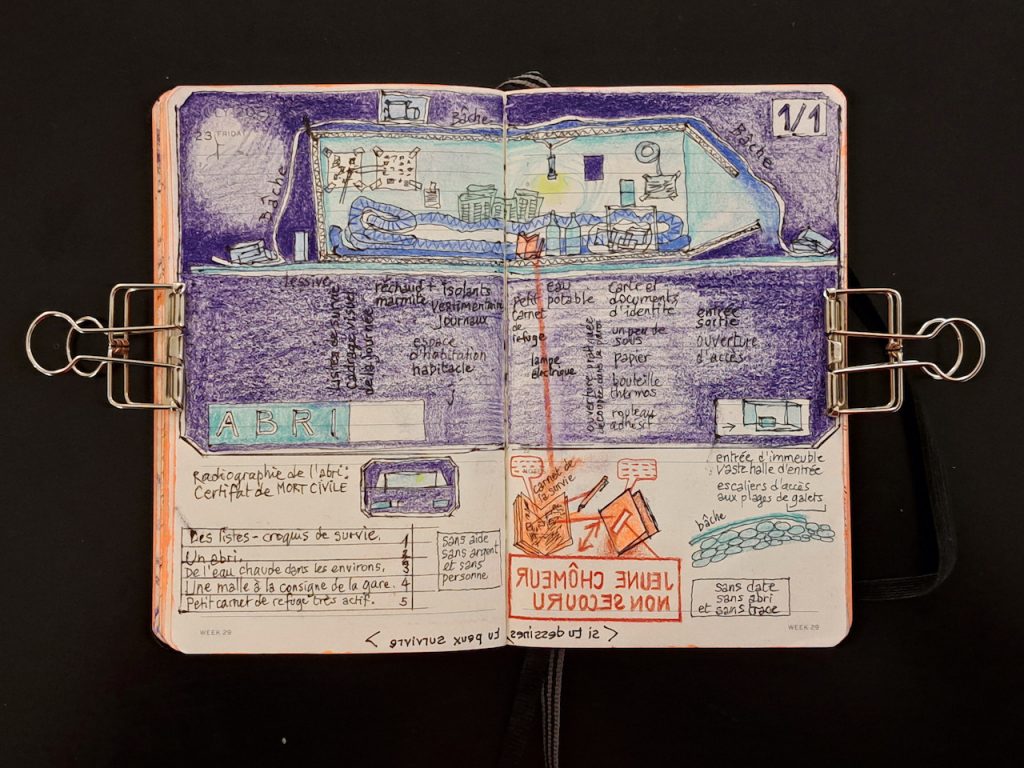 23 FRIDAY
Bâche
1/1
Bâche
Bâche
lessive
Listes de survie
Cadrages visuels
de la journée
réchaud +
marmite
isolants
vestimentaires
Journaux
espace
d'habitation
habitacle
petit
carnet
de
refuge
eau
potable
lampe
électrique
carte et
documents
d'identité
un peu de
sous
papier
bouteille
thermos
rouleau
adhésif
entrée
sortie
ouverture
d'accès
ABRI
Radiographie de l'abri:
Certifat de MORT CIVILE
Des listes-croquis de survie. 1
Un abri. 2
De l'eau chaude dans les environs. 3
Une malle à la consigne de la gare. 4
Petit carnet de refuge très actif. 5
sans aide
sans argent
et sans
personne
carnet de
la survie
JEUNE CHÔMEUR
NON SECOURU
entrée d'immeuble
vaste halle d'entrée
escaliers d'accès
aux plages de galets
bâche
sans date
sans abri
et sans trace
< si tu dessines, tu peux survivre >
WEEK 29
WEEK 29